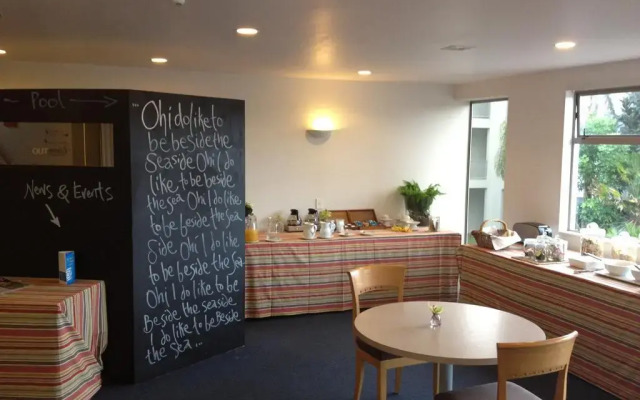 Pool
News & Events
... Oh i do like to
be beside the
Seaside Oh i do
like to be beside
the sea Oh i do like
to be beside the Sea
Side Oh i do like
to be beside the Sea
Oh i do like to be
Beside the seaside
I do like to be Beside
the sea...